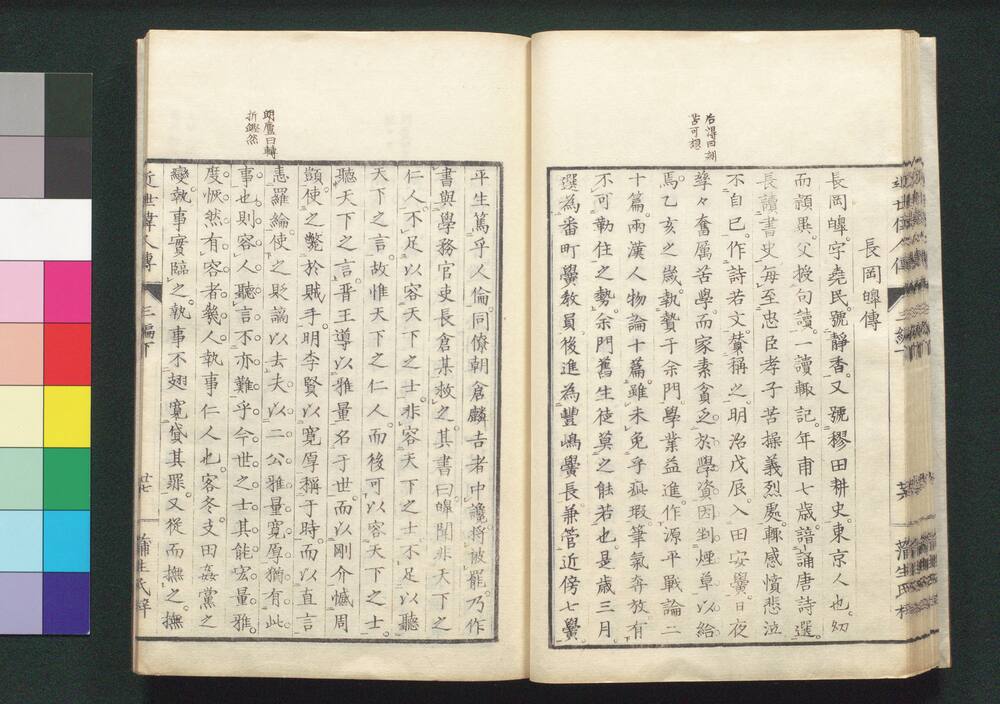 長岡皡傳
長岡皡。字堯民。號靜香。又號穆田耕史。東京人也。幼
而頴異。父授句讀。一讀輙記。年甫七歲。諳誦唐詩選。
長讀書史。每至忠臣孝子苦操義烈處。輙感憤悲泣
不自已。作詩若文。贊稱之。明治戊辰。入田安黌。日夜
孳々奮厲苦學。而家素貧乏於學資。因刲煙草以給
焉。乙亥之歲。執贄于余門。學業益進。作源平戰論二
十篇。兩漢人物論十篇。雖未免乎疵瑕。筆氣奔放。有
不可勒住之勢。余門舊生徒莫之能若也。是歲三月。
選為番町黌教員。後進為豐嶋黌長。兼管近傍七黌
平生篤乎人倫。同僚朝倉麟吉者中讒。將被罷。乃作
書與學務官吏長倉某救之。其書曰。皡聞非天下之
仁人。不足以容天下之士。非容天下之士。不足以聽
天下之言。故惟天下之仁人。而後可以容天下之士。
聽天下之言。晋王導以雅量名于世。而以剛介憾周
顗。使之斃於賊手。明李賢以寬厚稱于時。而以直言
恚羅綸。使之貶謫以去。夫以二公雅量寬厚。猶有此
事也。則容人聽言。不亦難乎。今世之士。其能宏量雅
度恢然有容者幾人。執事仁人也。客冬支田姦黨之
變。執事實臨之。執事不翅寬貸其罪。又從而撫之。撫
近世偉人傳
三編下
廿七
蒲生氏梓